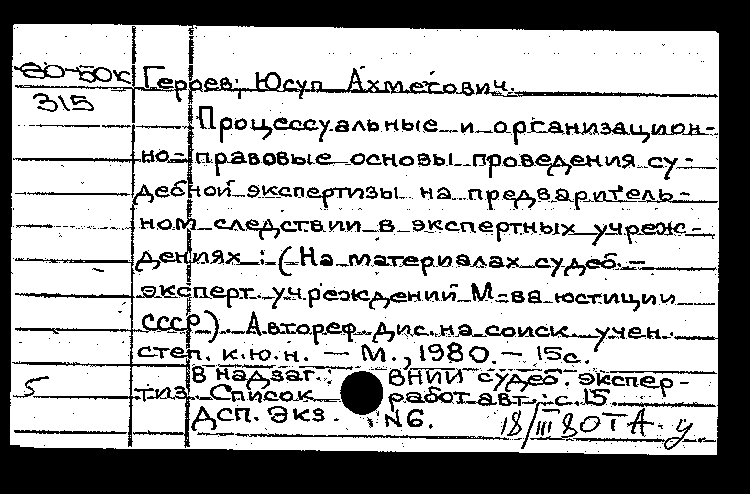 80-50к Героев, Юсуп Ахметович.
315
Процессуальные и организацион-
но-правовые основы проведения су-
дебной экспертизы на предваритель-
ном следствии в экспертных учреж-
дениях: (На материалах судеб.-
эксперт. учреждений М-ва юстиции
СССР). Автореф. дис. на соиск. учен.
степ. к.ю.н. — М., 1980. — 15с.
В надзаг.: ВНИИ судеб. экспер-
5 тиз. Список работ авт.: с.15.
Дсп. Экз. N6.
18/III 80 ТА